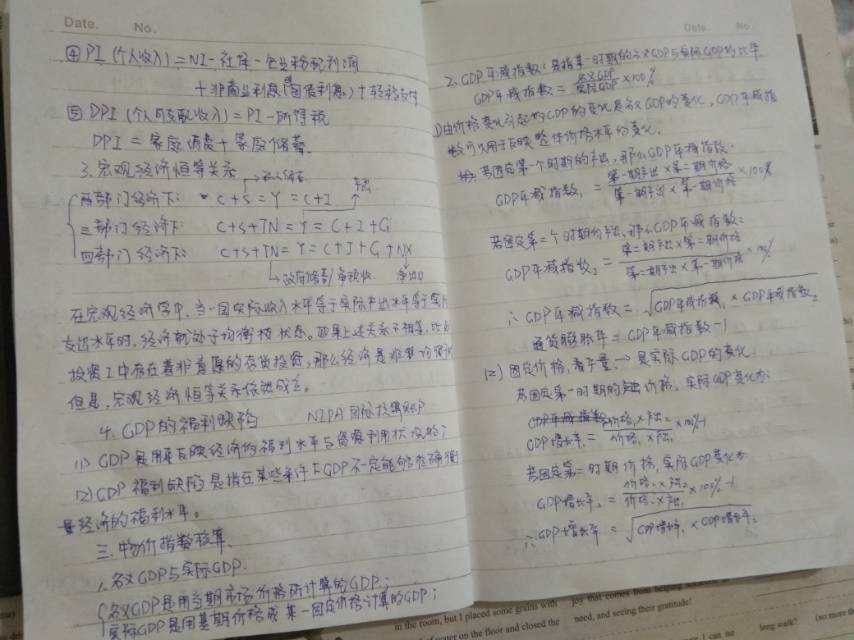 Date. No.
④ PI (个人收入) = NI - 社保 - 企业未分配利润
+ 非商业利息(国债利息) + 转移支付
⑤ DPI (个人可支配收入) = PI - 所得税
DPI = 家庭消费 + 家庭储蓄
3. 宏观经济恒等关系
→私人储蓄
支出
两部门经济下: C+S = Y = C+I
三部门经济下: C+S+TN = Y = C+I+G
四部门经济下: C+S+TN = Y = C+I+G+NX
→政府储蓄/净税收 净出口
在宏观经济学中,当一国实际收入水平等于实际产出水平等于实际
支出水平时,经济就处于均衡状态。如果上述关系不相等,
投资I中存在着非意愿的存货投资,那么经济是非
但是,宏观经济恒等关系依然成立。
4. GDP的福利缺陷 NIPA 国民核算账户
(1) GDP是用来反映经济的福利水平与资源利用状况的;
(2) GDP福利缺陷是指在某些条件下GDP不一定能够准确衡
量经济的福利水平。
三.物价指数核算
1.名义GDP与实际GDP
名义GDP是用当期市场价格所计算的GDP;
实际GDP是用基期价格或某一固定价格计算的GDP;
Date. No.
2. GDP平减指数:是指某一时期的名义GDP与实际GDP的比率
GDP平减指数 = 名义GDP/实际GDP ×100%
(1)由价格变化引起的GDP的变化是名义GDP的变化,GDP平减指
数可以用于反映整体价格水平的变化。
若固定第一个时期的产出,那么GDP平减指数:
GDP平减指数₁ = 第一期产出×第二期价格/第一期产出×第一期价格 ×100%
若固定第二个时期的产出,那么GDP平减指数:
GDP平减指数₂ = 第二期产出×第二期价格/第二期产出×第一期价格 ×100%
∴ GDP平减指数 = √GDP平减指数₁ × GDP平减指数₂
通货膨胀率 = GDP平减指数 - 1
(2) 固定价格,看产量 → 是实际GDP的变化
若固定第一时期的价格,实际GDP变化为:
GDP增长率₁ = 价格₁×产出₂/价格₁×产出₁ ×100% - 1
若固定第二时期价格,实际GDP变化为
GDP增长率₂ = 价格₂×产出₂/价格₂×产出₁ ×100% - 1
∴ GDP增长率 = √GDP增长率₁ × GDP增长率₂
in the room, but I placed some grains with
water on the floor and closed the
joy that comes from helping
need, and seeing their gratitude!
long walk?